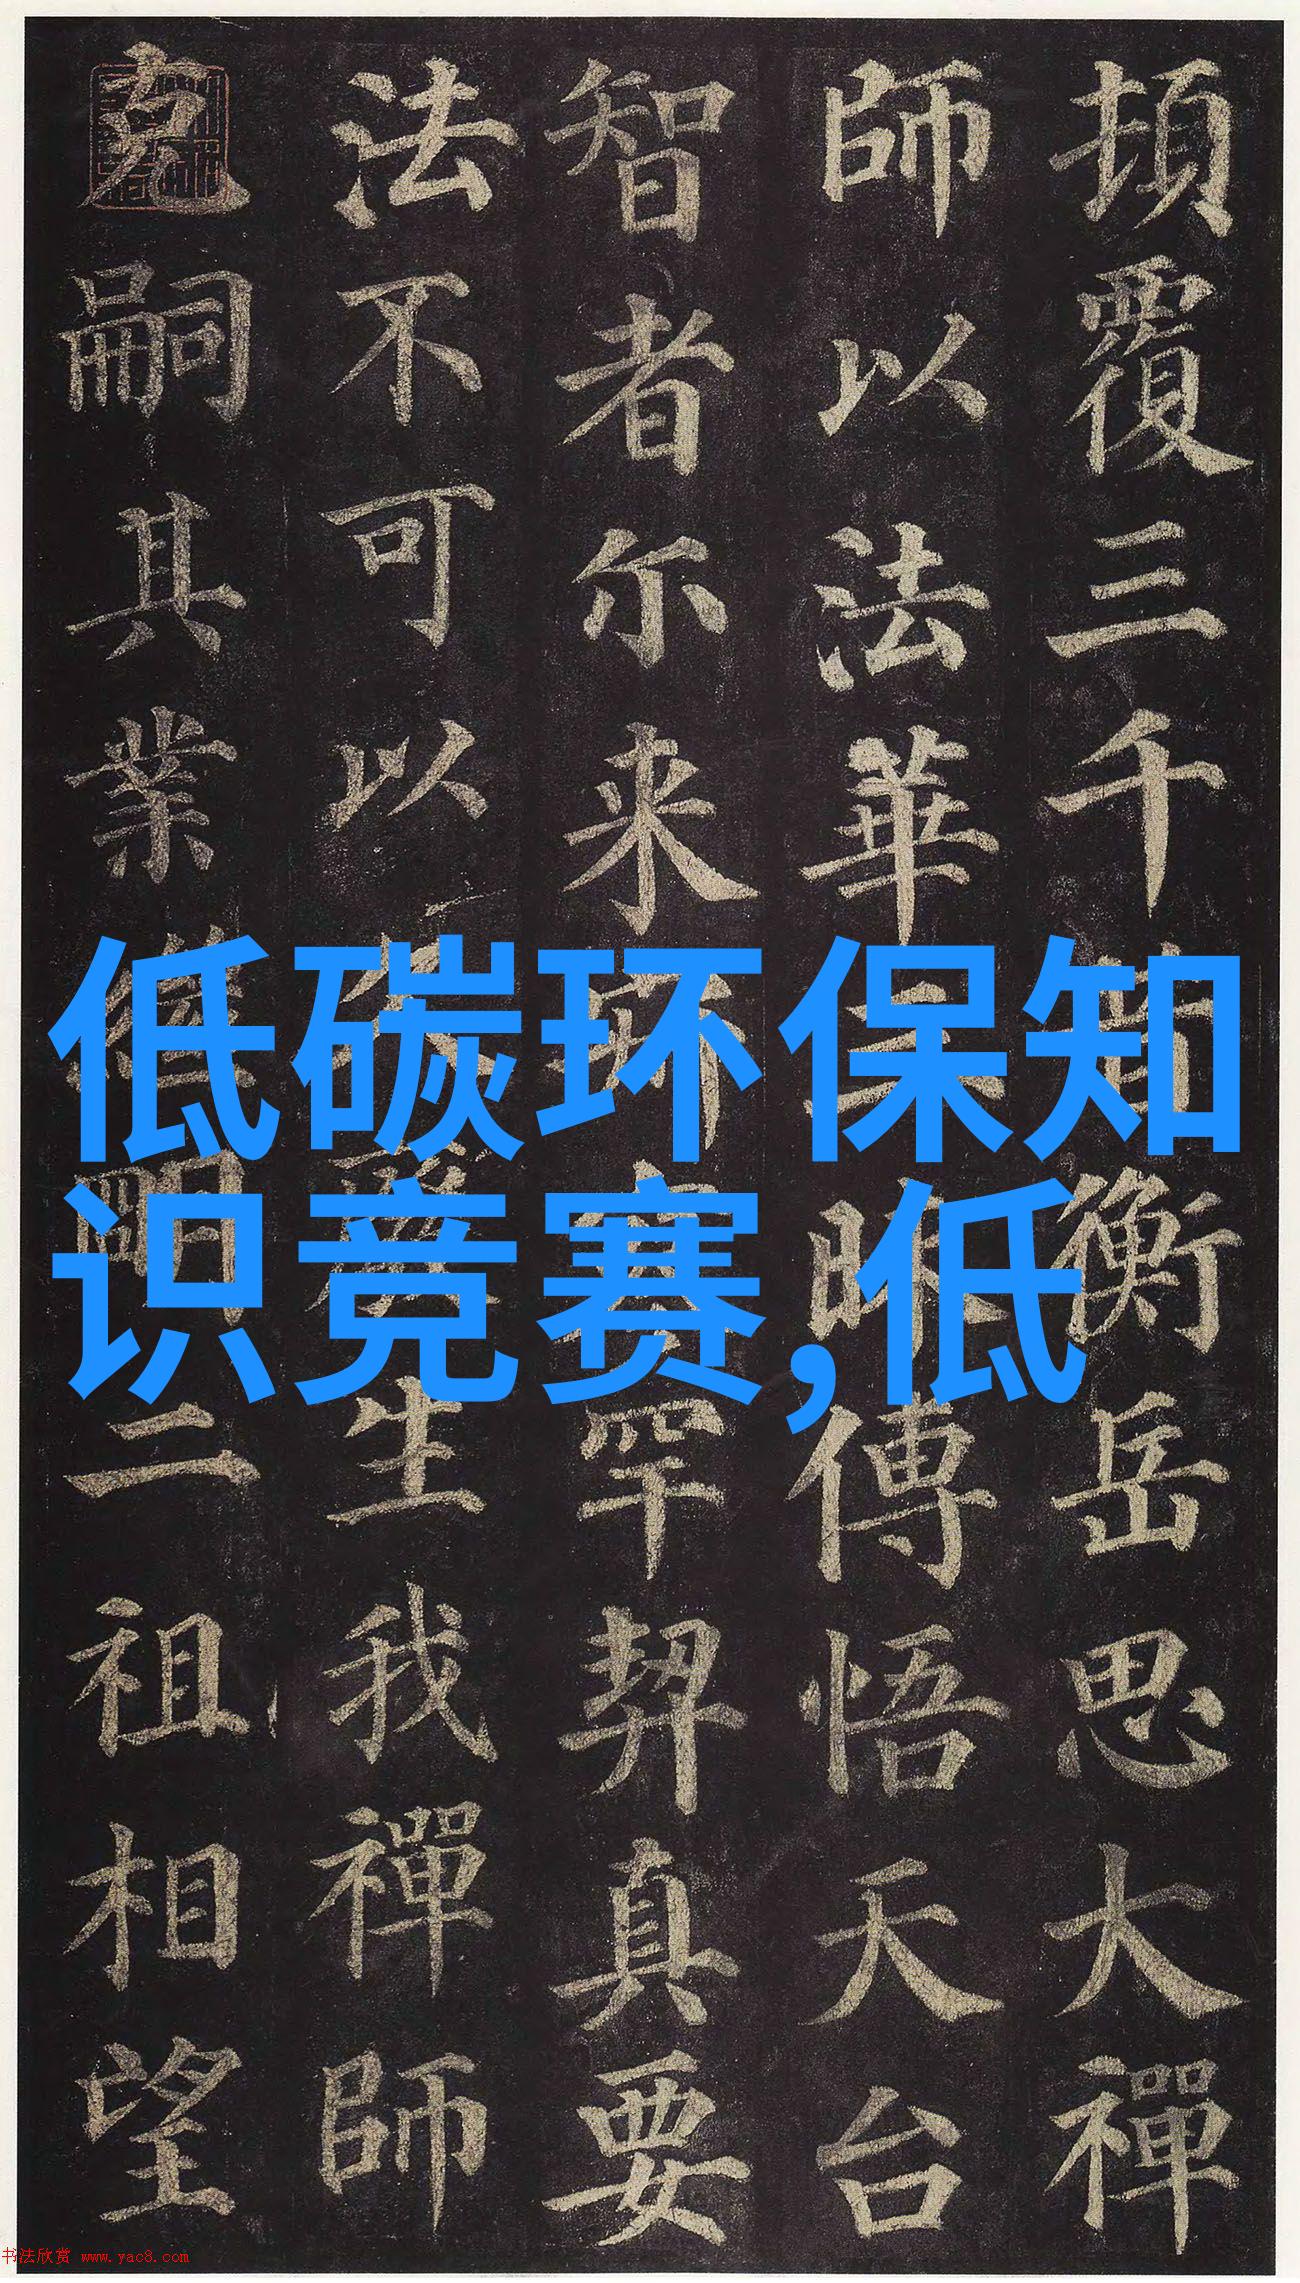 頂覆三千昔衡岳思大禪
師以法華三昧傳悟天台
智者尒来罕契真要
法不可以生我禪師
克嗣其業繼明二祖相望
低碳环保知
识竞赛,低
书法欣赏 www.yac8.com